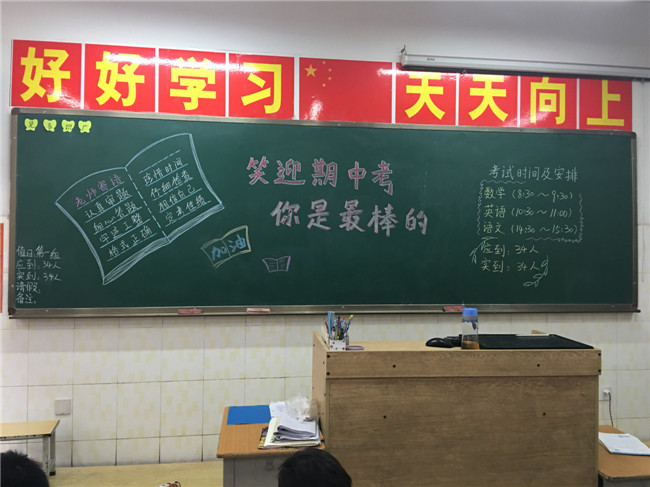 好好学习 天天向上
老师寄语
认真审题
细心答题
字迹工整
格式正确
珍惜时间
仔细检查
相信自己
定考佳绩
笑迎期中考
你是最棒的
加油
考试时间及安排
数学(8:30~9:30)
英语(10:30~11:00)
语文(14:30~15:30)
应到:34人
实到:34人
值日:第一组
应到:34人
实到:34人
请假:
备注: